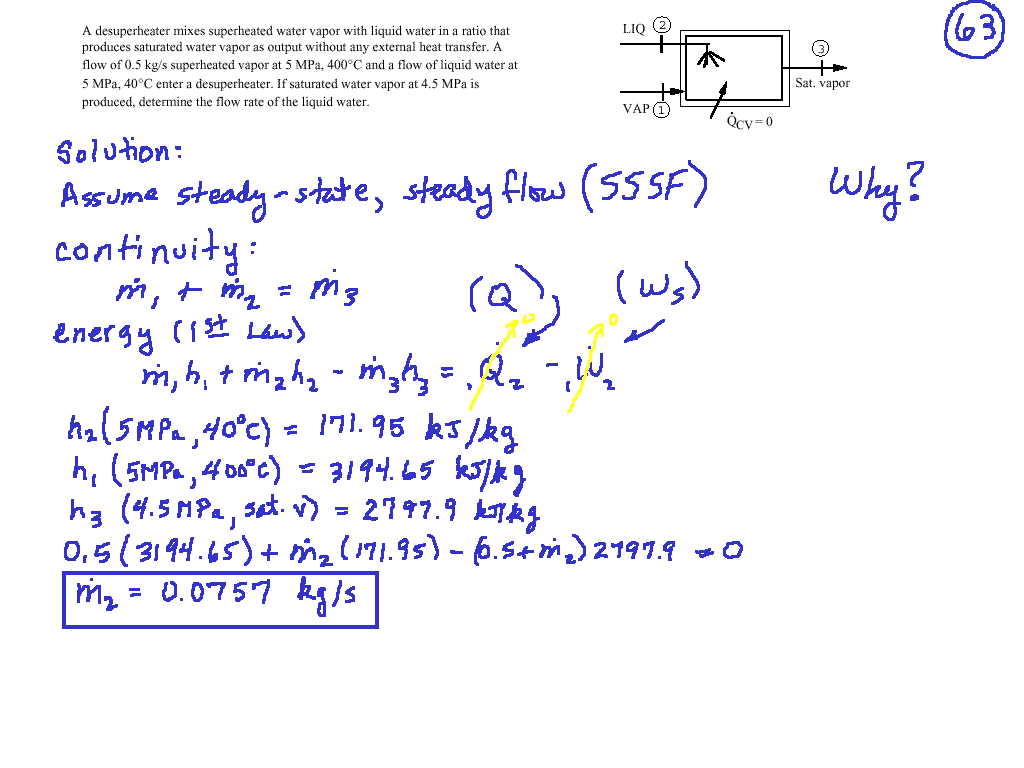 A desuperheater mixes superheated water vapor with liquid water in a ratio that
produces saturated water vapor as output without any external heat transfer. A
flow of 0.5 kg/s superheated vapor at 5 MPa, 400°C and a flow of liquid water at
5 MPa, 40°C enter a desuperheater. If saturated water vapor at 4.5 MPa is
produced, determine the flow rate of the liquid water.
LIQ 2
3
Sat. vapor
VAP 1
Q̇CV = 0
63
Solution:
Assume steady-state, steady flow (SSSF) Why?
continuity:
ṁ₁ + ṁ₂ = ṁ₃ (Q) (Ws)
energy (1st Law) 0 0
ṁ₁h₁ + ṁ₂h₂ - ṁ₃h₃ = ₁Q̇₂ - ₁Ẇ₂
h₂(5MPa, 40°C) = 171.95 kJ/kg
h₁ (5MPa, 400°C) = 3194.65 kJ/kg
h₃ (4.5MPa, sat. v) = 2797.9 kJ/kg
0.5(3194.65) + ṁ₂(171.95) - (0.5+ṁ₂)2797.9 = 0
ṁ₂ = 0.0757 kg/s